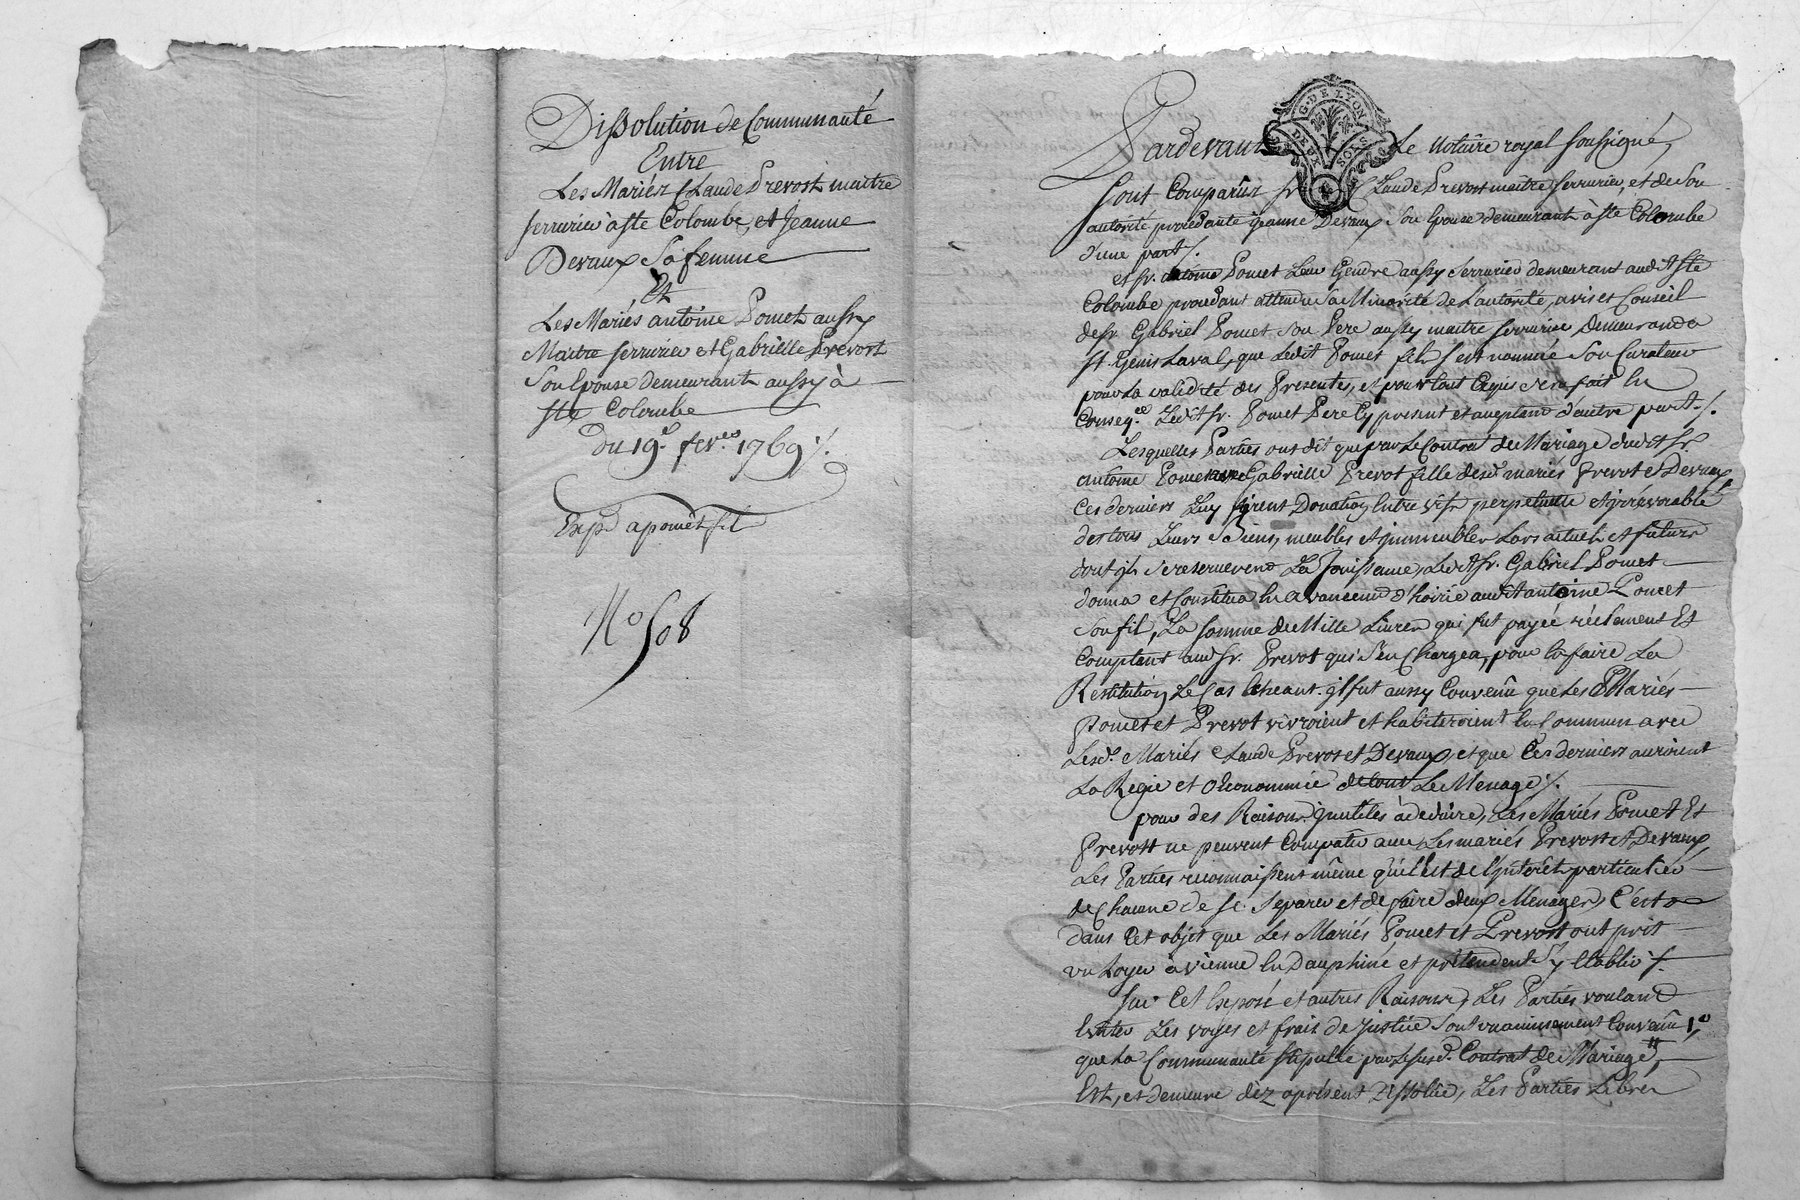 Dissolution de Communauté
Entre
Les Mariés Claude Prevost maitre
serrurier à Ste Colombe, et Jeanne
Devaux Sa femme
Et
Les Mariés antoine Pomet aussy
Maitre serrurier et Gabrielle Prevost
Son Epouse demeurant aussy à
Ste Colombe
Du 19e. fevr. 1769 ./.
Exp.é a pomet fil
No 508
G. DE LYON
DEUX SOLS
Pardevant Le Notaire royal soussigné,
sont Comparus sr. Claude Prevost maitre serrurier, et de Son
autorité procedante jeanne Devaux Son Epouse demeurant à Ste Colombe
d'une part ./.
et sr. antoine Pomet Leur Gendre aussy Serrurier demeurant audit Ste
Colombe procedant attendu Sa Minorité de L'autorité, avis et Conseil
de sr. Gabriel Pomet Son Pere aussy maitre serrurier Demeurant a
St. Genis Laval, que Ledit Pomet fils s'est nommé Son Curateur
pour La validité des Presentes, et pour tout Ce qui sera fait En
Conseq.ce Ledit sr. Pomet Pere Cy present et acceptant d'autre part ./.
Lesquelles Parties ont dit que par Le Contrat de Mariage dudit sr.
antoine Pomet avec Gabrielle Prevot fille desd. mariés Prevot et Devaux
Ces derniers Luy firent Donation Entre vifs perpetuelle et irrévocable
de tous Leurs Biens, meubles et immeubles Lors actuels et futurs
dont ils Se reserverent La Jouissance, Ledit sr. Gabriel Pomet
donna et Constitua En avancement d'hoirie audit antoine Pomet
Son fil, La somme de Mille Livres qui fut payée réelement Et
Comptant aud. sr. Prevot qui S'en Chargea, pour En faire La
Restitution Le Cas Echeant. il fut aussy Convenu que Les Mariés
Pomet et Prevot vivroient et habiteroient En Commun avec
Lesd. Mariés Claude Prevost et Devaux, et que Ces derniers auroient
La Regie et Oeconomie de tout Le Menage ./.
pour des Raisons inutiles à deduire, Les Mariés Pomet Et
Prevost ne peuvent Compatir avec Les mariés Prevost et Devaux,
Les Parties reconnaissent même qu'il Est de L'interêt particulier
de Chacune de se Separer et de faire deux Menages, C'est
dans Cet objet que Les Mariés Pomet et Prevost ont prit
un Loyer à vienne En Dauphiné et prétendent S'y Etablir ./.
sur Cet Exposé et autres Raisons, Les Parties voulant
Eviter Les voyes et frais de Justice Sont unanimement Convenu 1.o
que La Communauté stipulée par Le susd. Contrat de Mariage,
Est, et demeure dèz apresent Dissolüe, Les Parties Libres